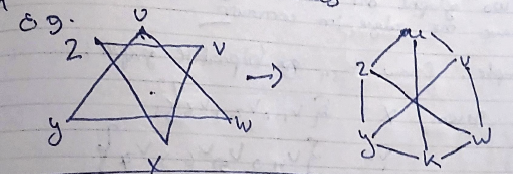 Eg.
U
Z V
y W
X
→
u
Z V
y W
K